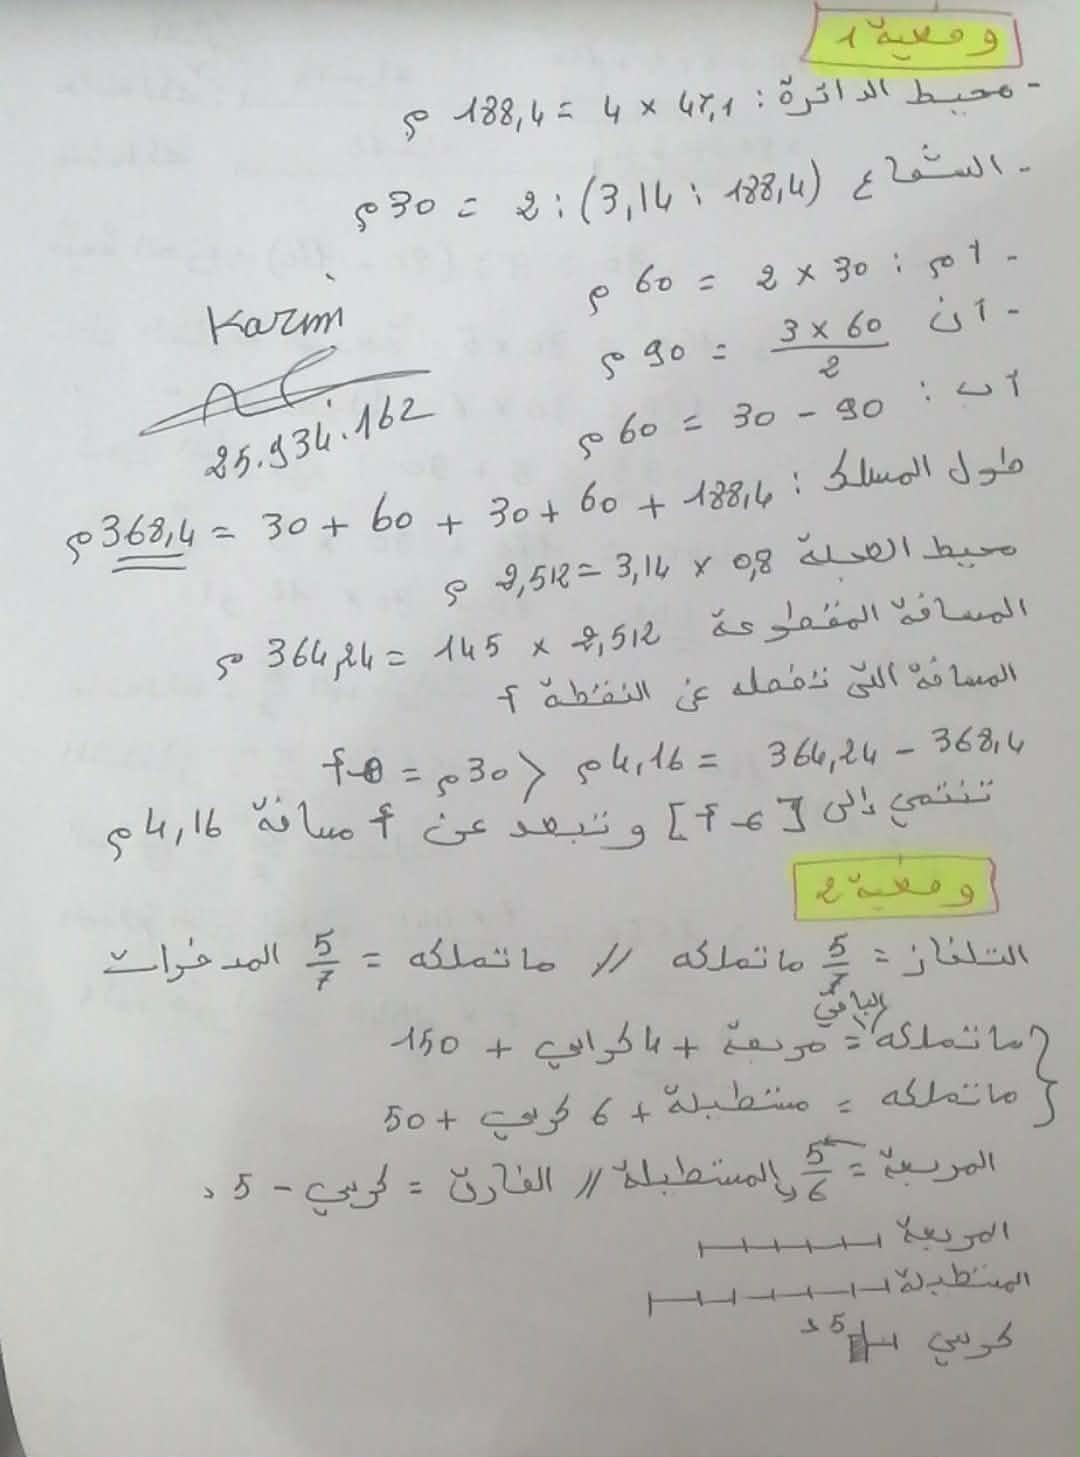 وضعية 1
- محيط الدائرة : 47,1 × 4 = 188,4 م
- الشعاع (188,4 : 3,14) : 2 = 30 م
- أم : 30 × 2 = 60 م
- أن 60 × 3 / 2 = 90 م
أب : 90 - 30 = 60 م
Karim
25.934.162
طول المسلك : 188,4 + 60 + 30 + 60 + 30 = 368,4 م
محيط العجلة 0,8 × 3,14 = 2,512 م
المسافة المقطوعة 2,512 × 145 = 364,24 م
المسافة التي تفصله عن النقطة أ
368,4 - 364,24 = 4,16 م < 30 م =
تنتمي إلى [ ] و تبعد عن أ مسافة 4,16 م
وضعية 2
التلفاز = 5/7 ما تملكه // ما تملكه = 5/7 المدخرات
الباقي
ما تملكه = مربعة + 4 كراسي + 150
ما تملكه = مستطيلة + 6 كرسي + 50
المربعة = 5/6 المستطيلة // الفارق = كرسي - 5 د
المربعة
المستطيلة
كرسي 5 د